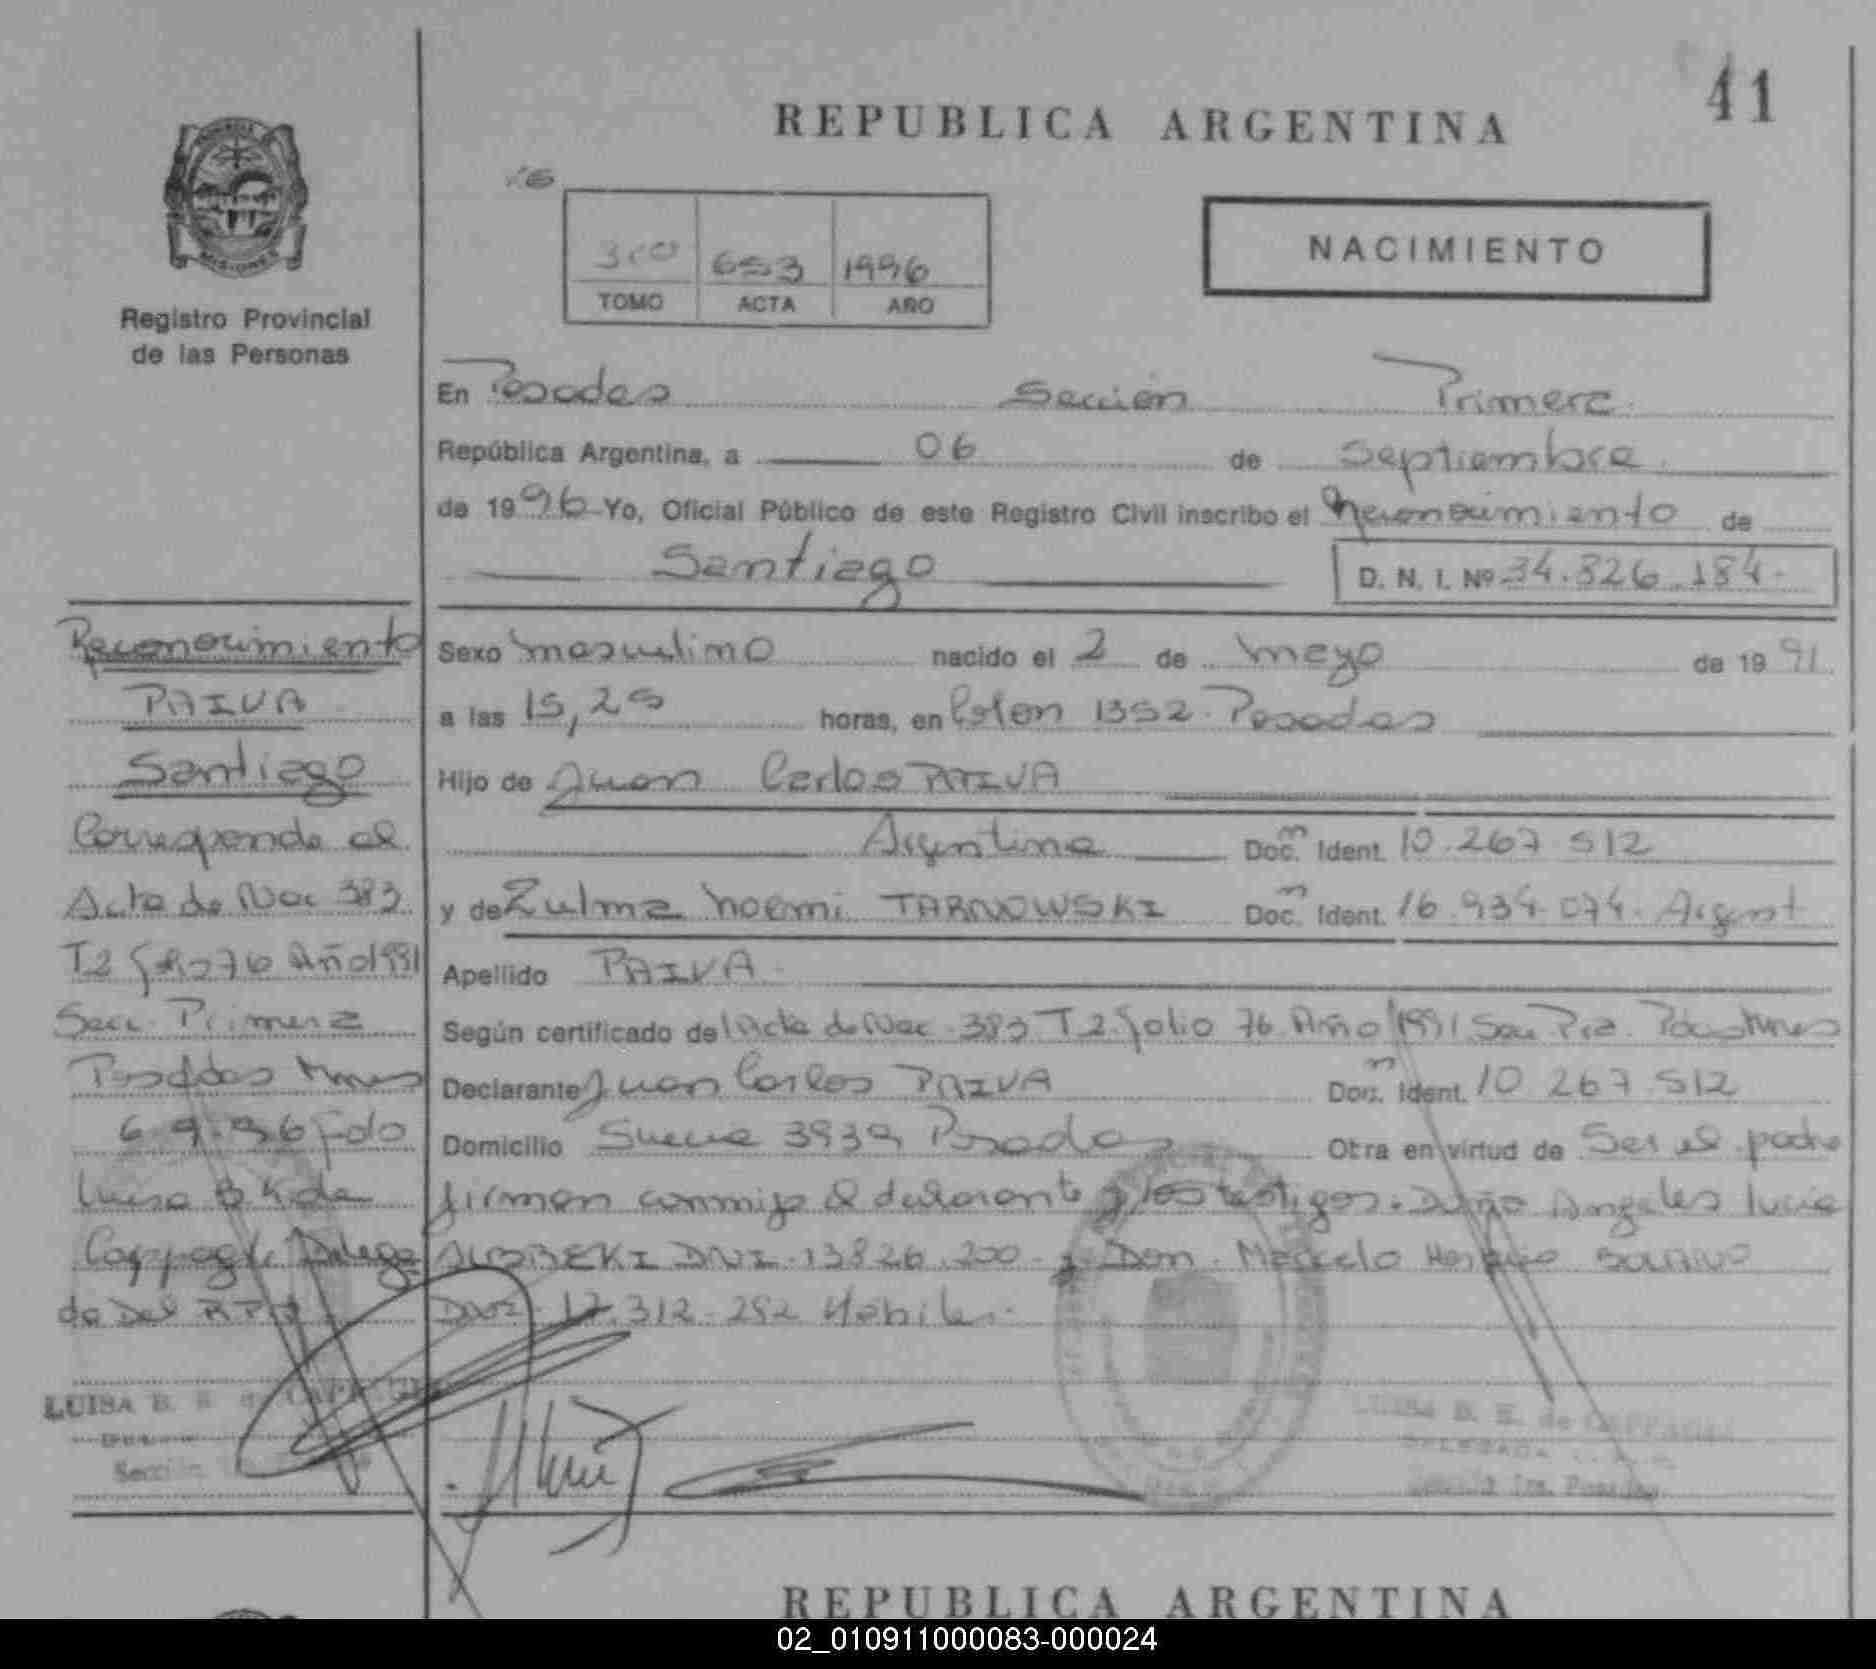 41
REPUBLICA ARGENTINA
MISIONES
Registro Provincial
de las Personas
653 1996
TOMO ACTA AÑO
NACIMIENTO
En Posadas Sección Primera
República Argentina, a 06 de Septiembre
de 1996 Yo, Oficial Público de este Registro Civil inscribo el Reconocimiento de
Santiago D. N. I. Nº 34.826.184.
Sexo masculino nacido el 2 de mayo de 1991
a las 15,25 horas, en Colon 1352 Posadas
Hijo de Juan Carlos PAIVA
Argentina Doc. Ident. 10.267.512
y de Zulma Noemi TARNOWSKI Doc. Ident. 16.934.074. Argent
Apellido PAIVA
Según certificado de Acta de Nac. 383 T2 folio 76 Año 1991 Sec Pra. Pdas Mnes
Declarante Juan Carlos PAIVA Doc. Ident. 10 267 512
Domicilio 3939 Posadas Otra en virtud de Ser el padre
firman conmigo el declarante y los testigos. Doña Angeles Lucia
DNI 13826.200 y Don. Marcelo Horacio
DNI 17.312.252 Habiles.
Reconocimiento
PAIVA
Santiago
Corresponde al
Acta de Nac 383
T2 folio 76 Año 1991
Secc. Primera
Posadas Mnes
6.9.96 Fdo
Luisa B K de
Cappagli Delega
da Del RPP
LUISA B. K. de CAPPAGLI
Sección
LUISA B. K. de CAPPAGLI
DELEGADA
Sección 1ra. Posadas
REPUBLICA ARGENTINA
02_010911000083-000024